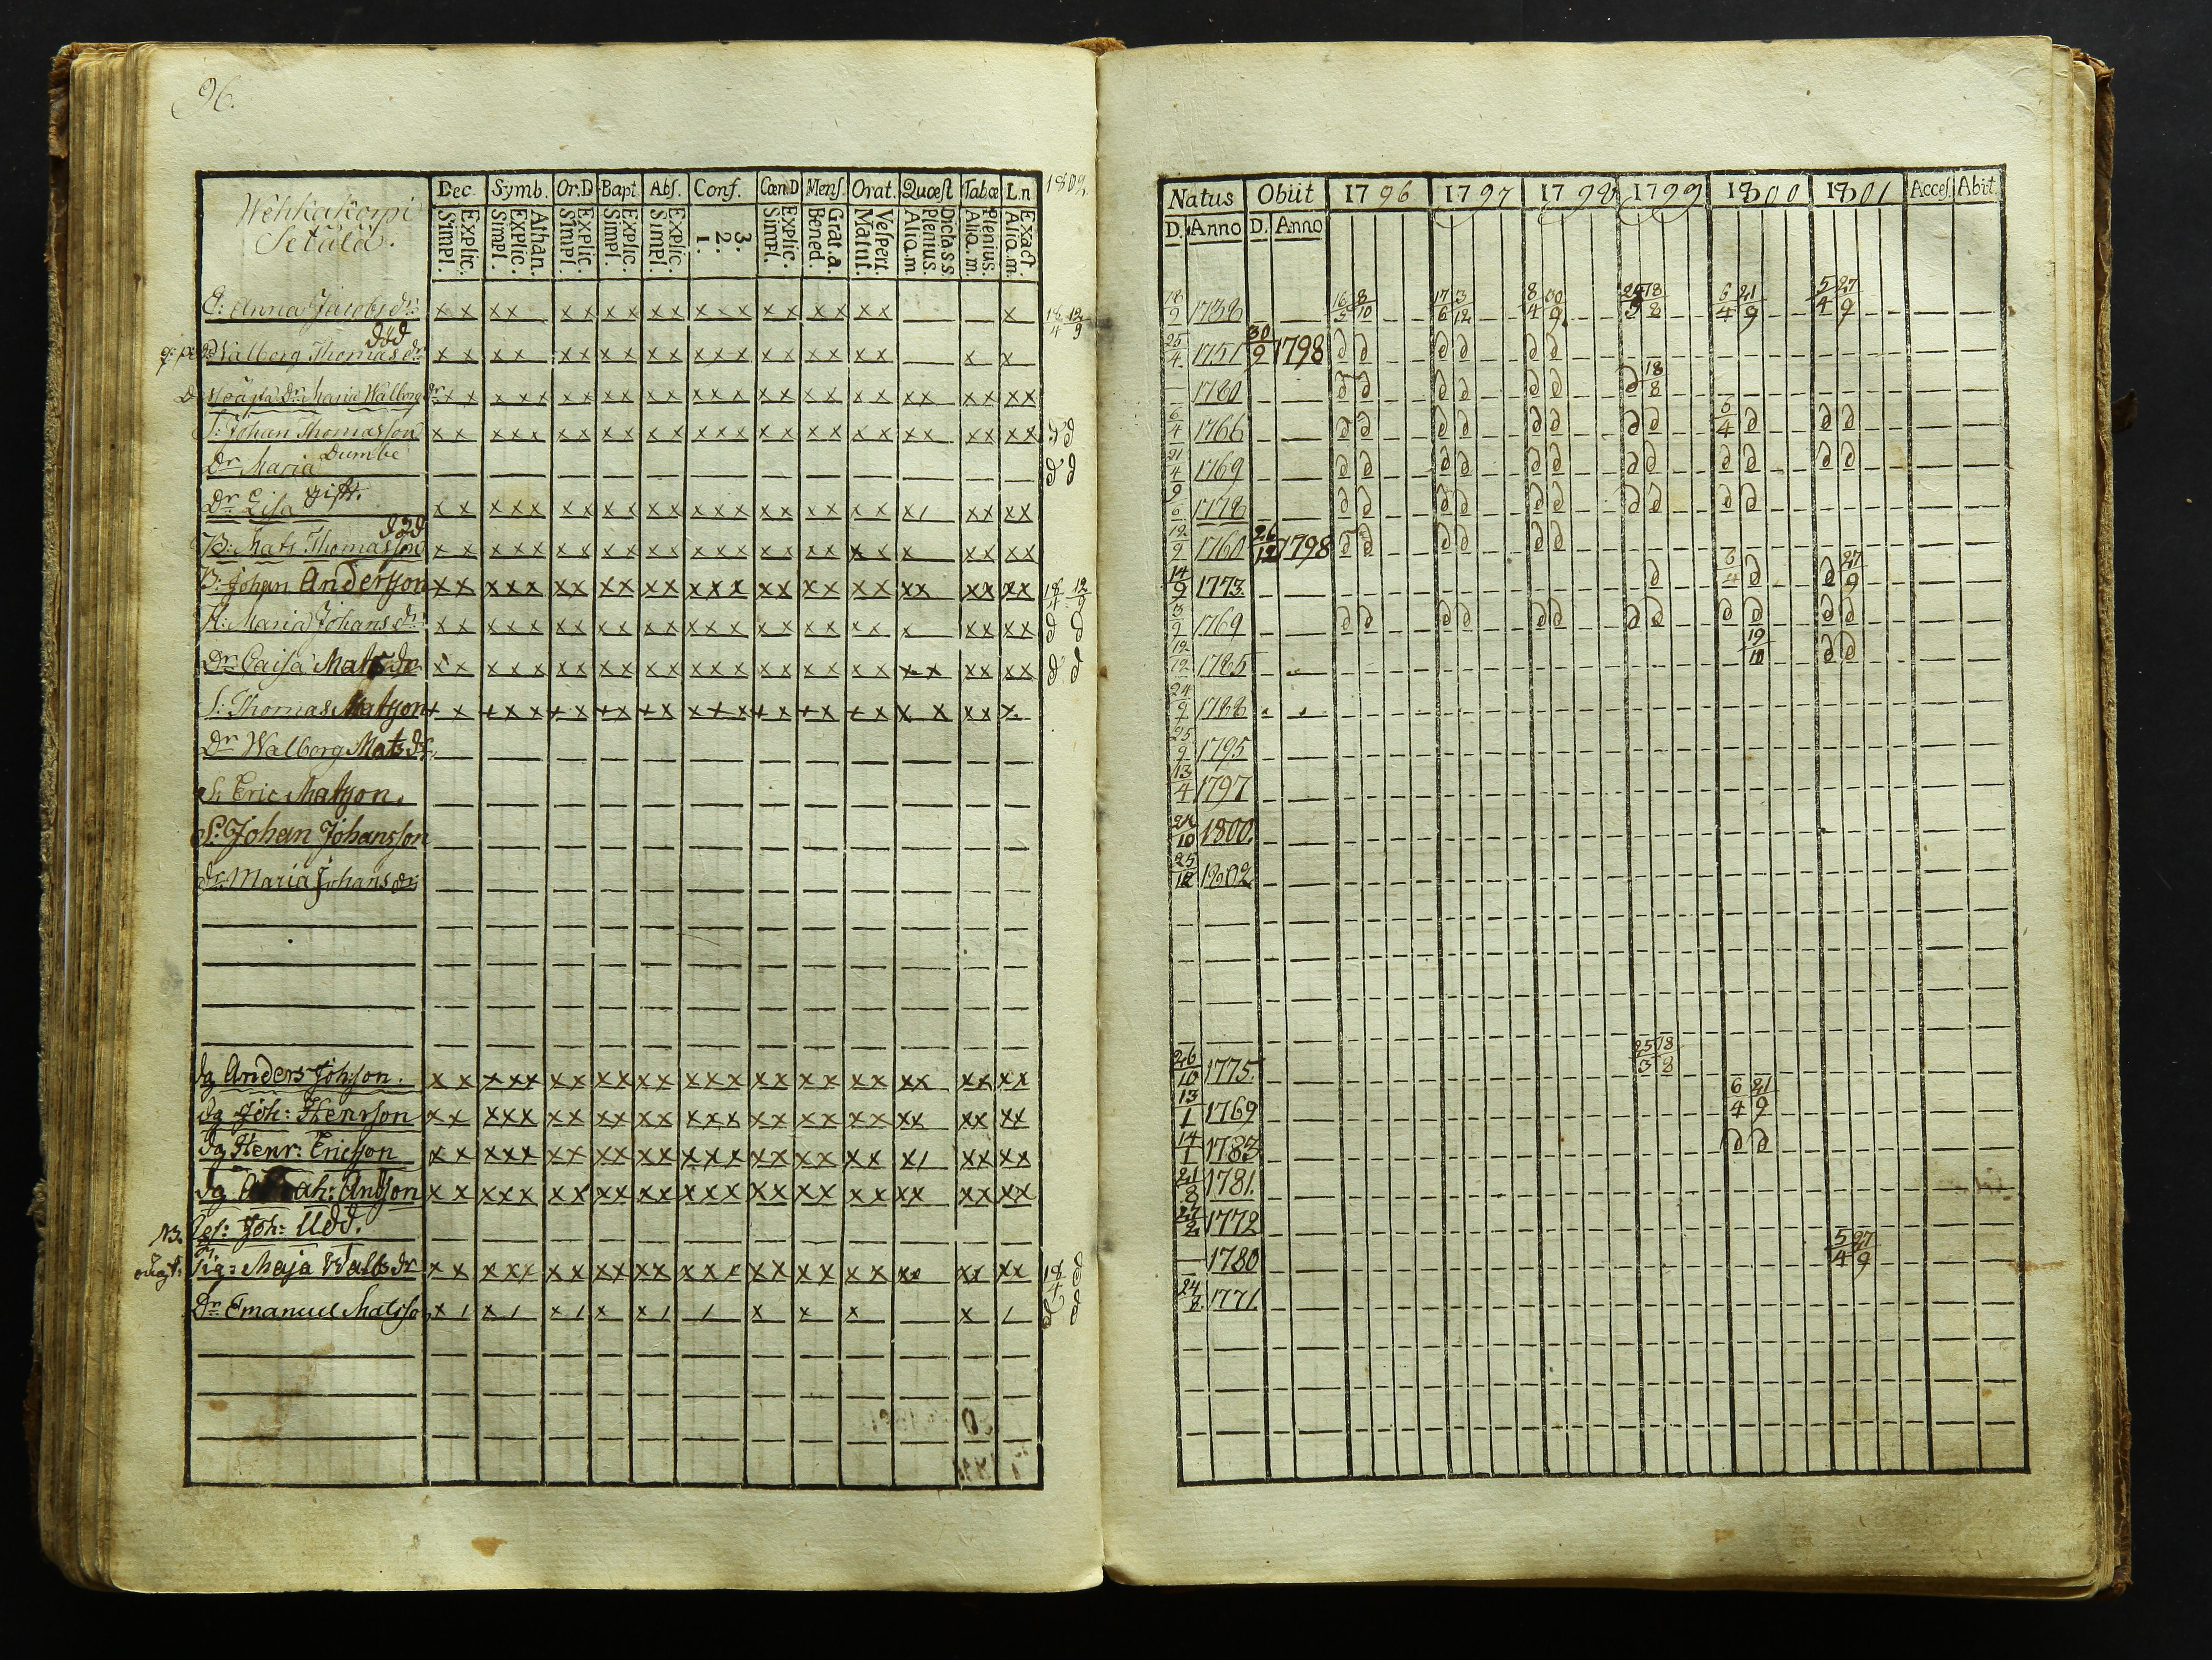 96.
Wehkakorpi
Setälä.
Dec. Symb. Or.D Bapt Abſ. Conf. Cœn.D Menſ. Orat. Quœſt Tabœ L.n 1802.
Explic. Simpl. Athan. Explic. Simpl. Explic. Simpl. Explic. Simpl. Explic. Simpl. 3. 2. 1. Explic. Simpl. Grat.a. Bened. Veſpert. Matut. Dicta s s. Plenius. Aliq.m. Plenius. Aliq.m. Exact Aliq.m.
E: Anna Jacobs dr: x x x x x x x x x x x x x x x x x x x x 18/4 12/9
död
Walborg Thomas dr x x x x x x x x x x x x x x x x x x x x x
Maria Walborg dr x x x x x x x x x x x x x x x x x x x x x x x x x
S: Johan Thomasson x x x x x x x x x x x x x x x x x x x x x x x x x x d d
Dr Maria Dumbe d d
Dr Lisa gift. x x x x x x x x x x x x x x x x x x x x x 1 x x x x
död
B: Mats Thomasson x x x x x x x x x x x x x x x x x x x x x x x x x
B: Johan Andersson x x x x x x x x x x x x x x x x x x x x x x x x x x 18/4 12/9
H: Maria Johans dr: x x x x x x x x x x x x x x x x x x x x x x x x x d d
Dr Caisa Mats dr x x x x x x x x x x x x x x x x x x x x x x x x x x d d
S: Thomas Matsson x x x x x x x x x x x x x x x x x x x x x x x x x
Dr Walborg Mats dr.
S. Eric Matsson.
S. Johan Johansson
dr. Maria Johans dr
dg Anders Johsson. x x x x x x x x x x x x x x x x x x x x x x x x x x
dg Joh: Henrsson x x x x x x x x x x x x x x x x x x x x x x x x x x
dg Henr: Ericsson x x x x x x x x x x x x x x x x x x x x x 1 x x x x
dg ah: Andsson x x x x x x x x x x x x x x x x x x x x x x x x x x
Joh: Udd.
Pig: Maja Walb dr x x x x x x x x x x x x x x x x x x x x x x x x x x 18/4 d
Dr Emanuel Matsson x 1 x 1 x 1 x x 1 1 x x x x 1 d d
Natus Obiit 1796 1797 1798 1799 1800 1801 Acceſ. Abit.
D. Anno D. Anno
18/9 1738 16/5 8/10 17/6 3/12 8/4 30/9 18/8 6/4 21/9 5/4 27/9
25/4 1751 30/9 1798 d d d d d d
1780 d d d d d d d 18/8
6/4 1766 d d d d d d d d 6/4 d d d
21/4 1769 d d d d d d d d d d d d
9/6 1778 d d d d d d d d d d
12/9 1760 26/12 1798 d d d d d d
14/9 1773. d 6/4 d d 27/9
3/9 1769 d d d d d d d d d d d d
12/12 1785 19/10 d d
24/9 1788
25/9 1795
13/4 1797
24/10 1800.
25/12 1802
26/10 1775. 25/3 18/8
13/1 1769 6/4 21/9
14/1 1783 d d
21/8 1781.
27/2 1772
1780 5/4 27/9
24/8 1771.